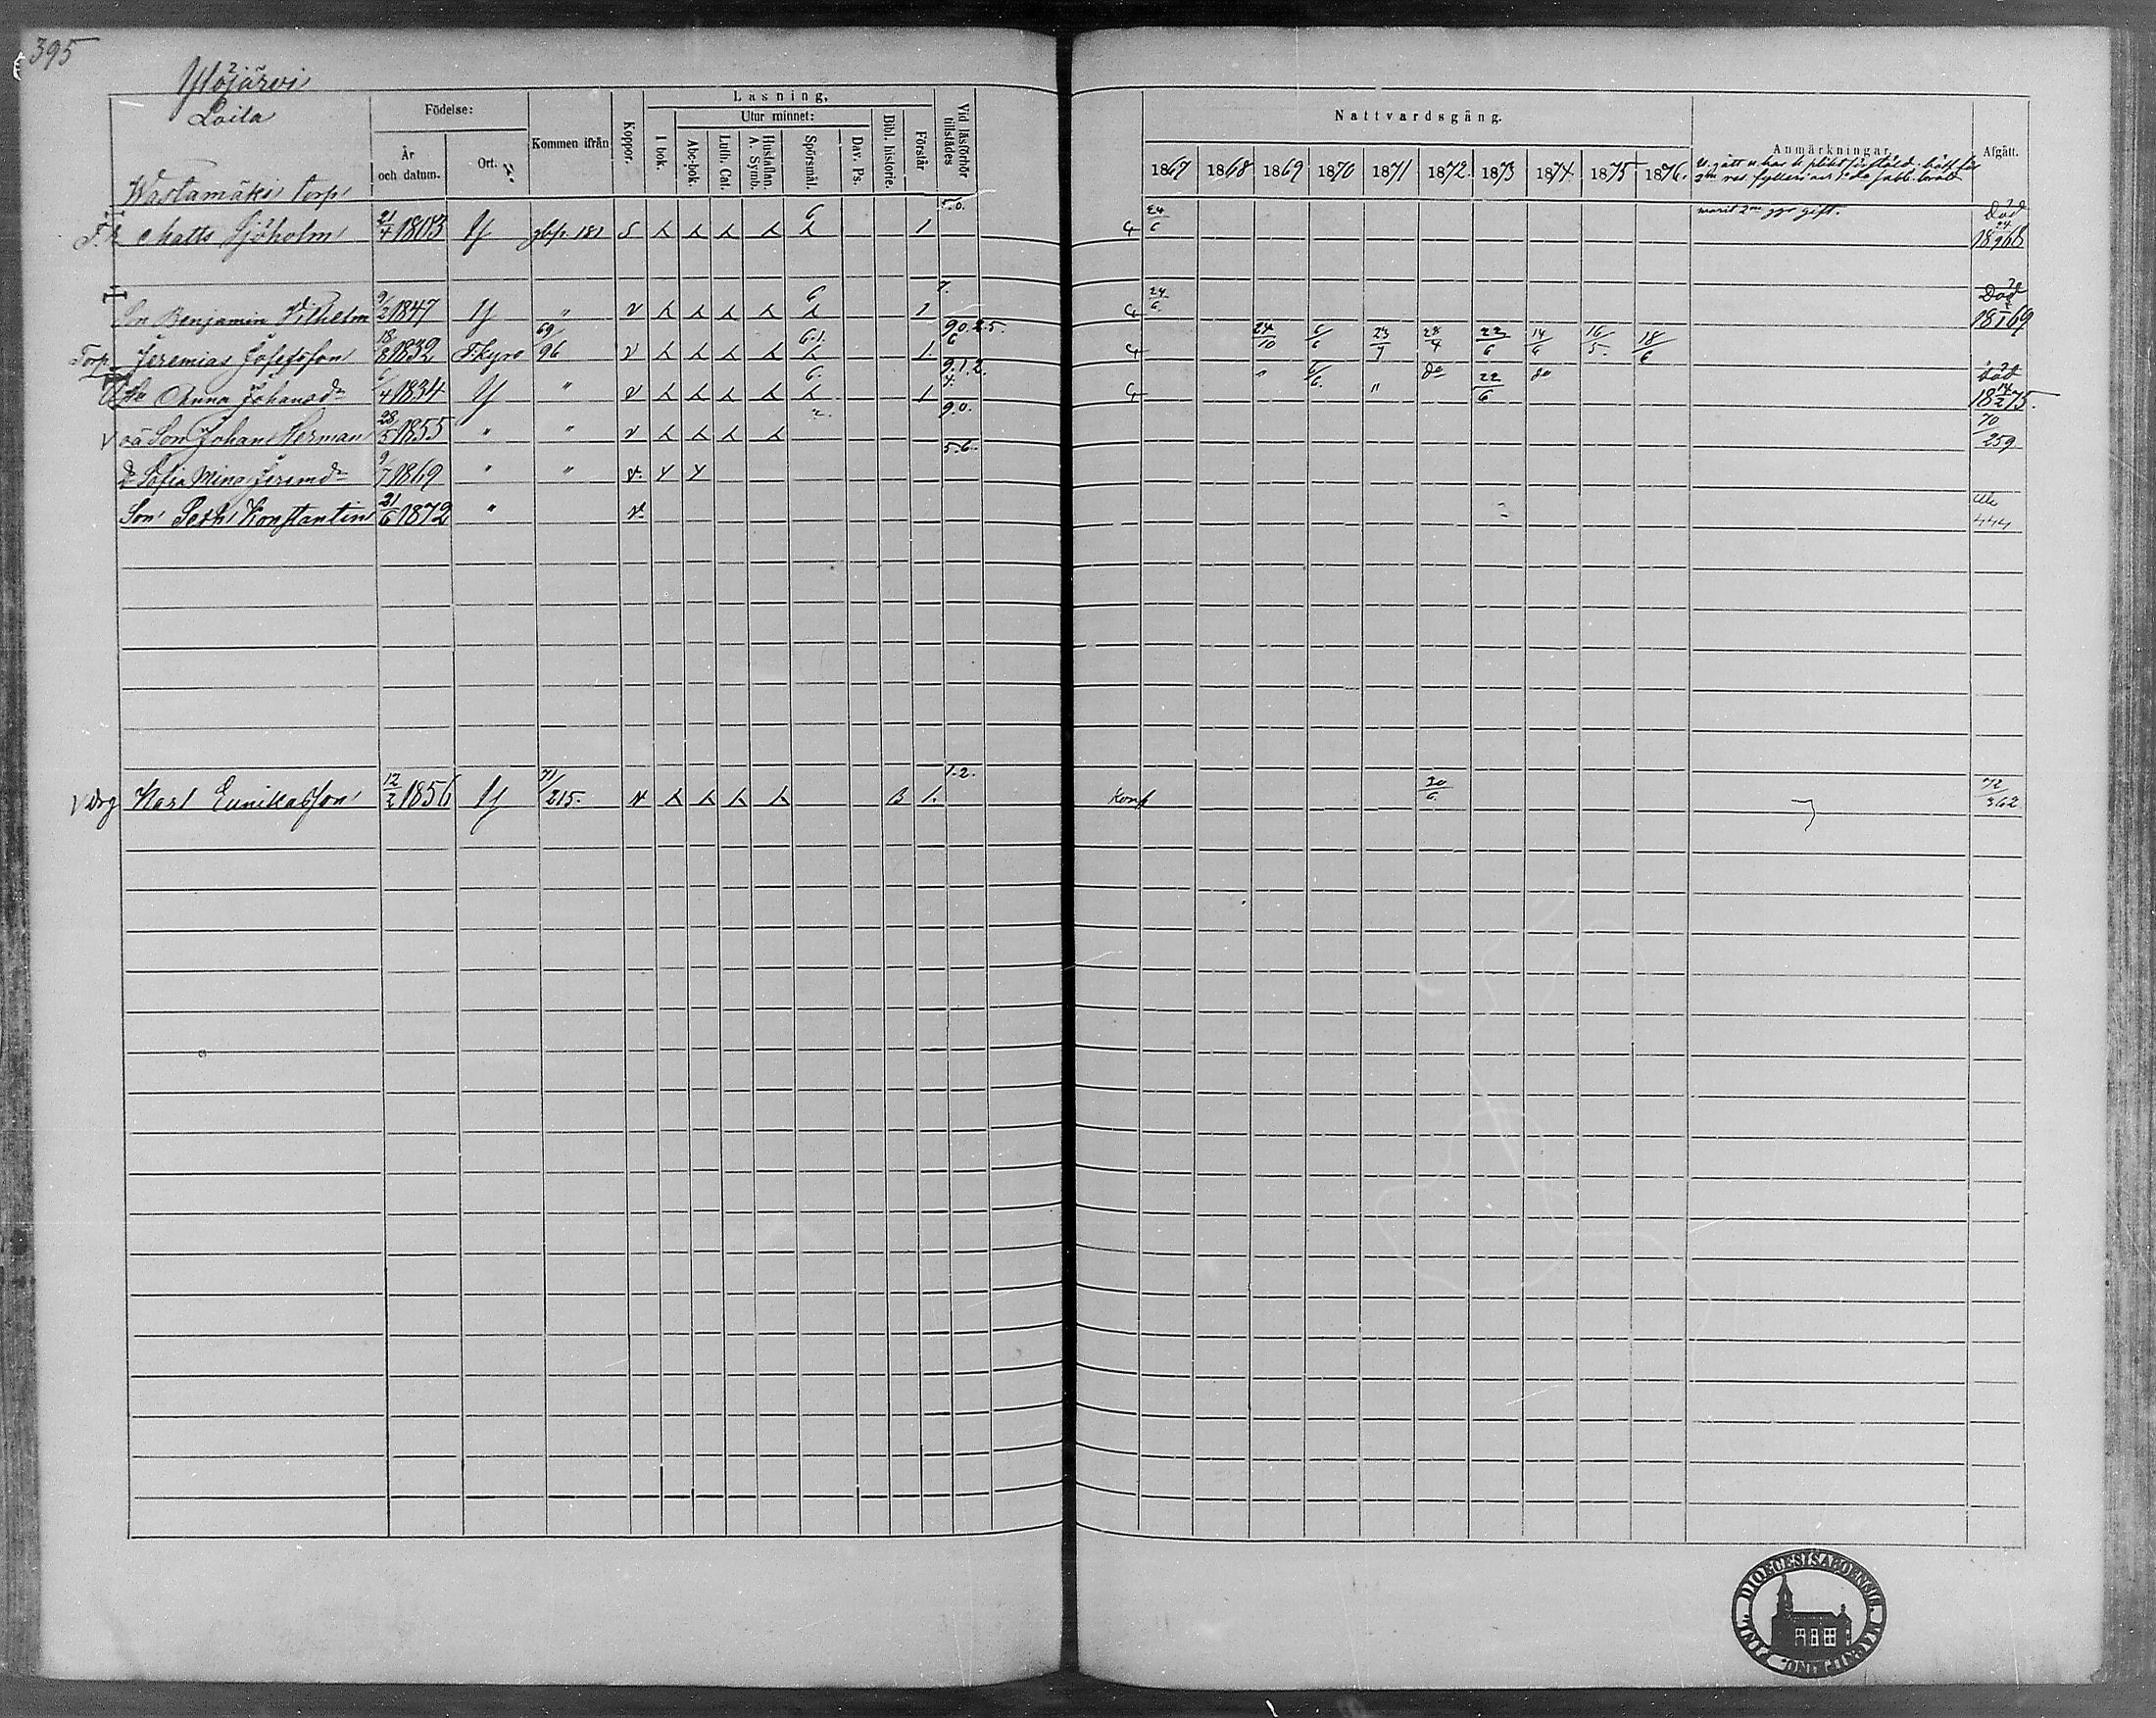 395
Ylöjärvi
Loila
Födelse:
År och datum.
Ort.
Kommen ifrån
Koppor.
Läsning,
I bok.
Utur minnet:
Abc-bok.
Luth. Cat.
Hustaflan. A. Symb.
Spörsmål.
Dav. Ps.
Bibl. historie.
Förstår
Vid läsförhör tillstädes
Nattvardsgång.
1867 1868 1869 1870 1871 1872 1873 1874 1875 1876.
Anmärkningar.
Afgått.
Wastamäki torp
Matts Sjöholm 21/4 1803 Y gbp. 181 S 6 1 5.6. 24/6 varit 2ne ggr gift. Död 1868
Son Benjamin Vilhelm 9/2 1847 Y " v 6 1 7. 24/6 Död 1869
Torp. Jeremias Josefsson 18/8 1832 T.kyro 69/96 v 6.1. 1. 9.0.2.5. 6 24/10 6/6 23/7 28/4 22/6 14/6 16/5. 18/6
Anna Johansdr 4 1834 Y " v 6. 1 9.1.2. 4. " 6/6. " do 22/6 do död 1875.
v oä Son Johan Herman 28/5 1855 " " v 2. 9.0. 70/259
dr Sofia Mina Jeremdr 9/7 1869 " " v. 5.6.
Son Seth Konstantin 21/6 1872 " v. 444
v drg Karl Eenikasson 12/2 1856 Y 71/215. v B 1. 1.2. Konf 30/6. 72/362
DIOECESIS ABOENSIS.